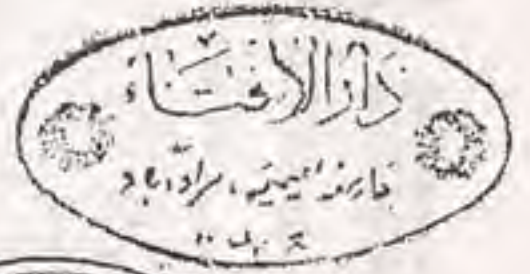 دَارُالافتَاء
جامعہ نعیمیہ، مرادآباد